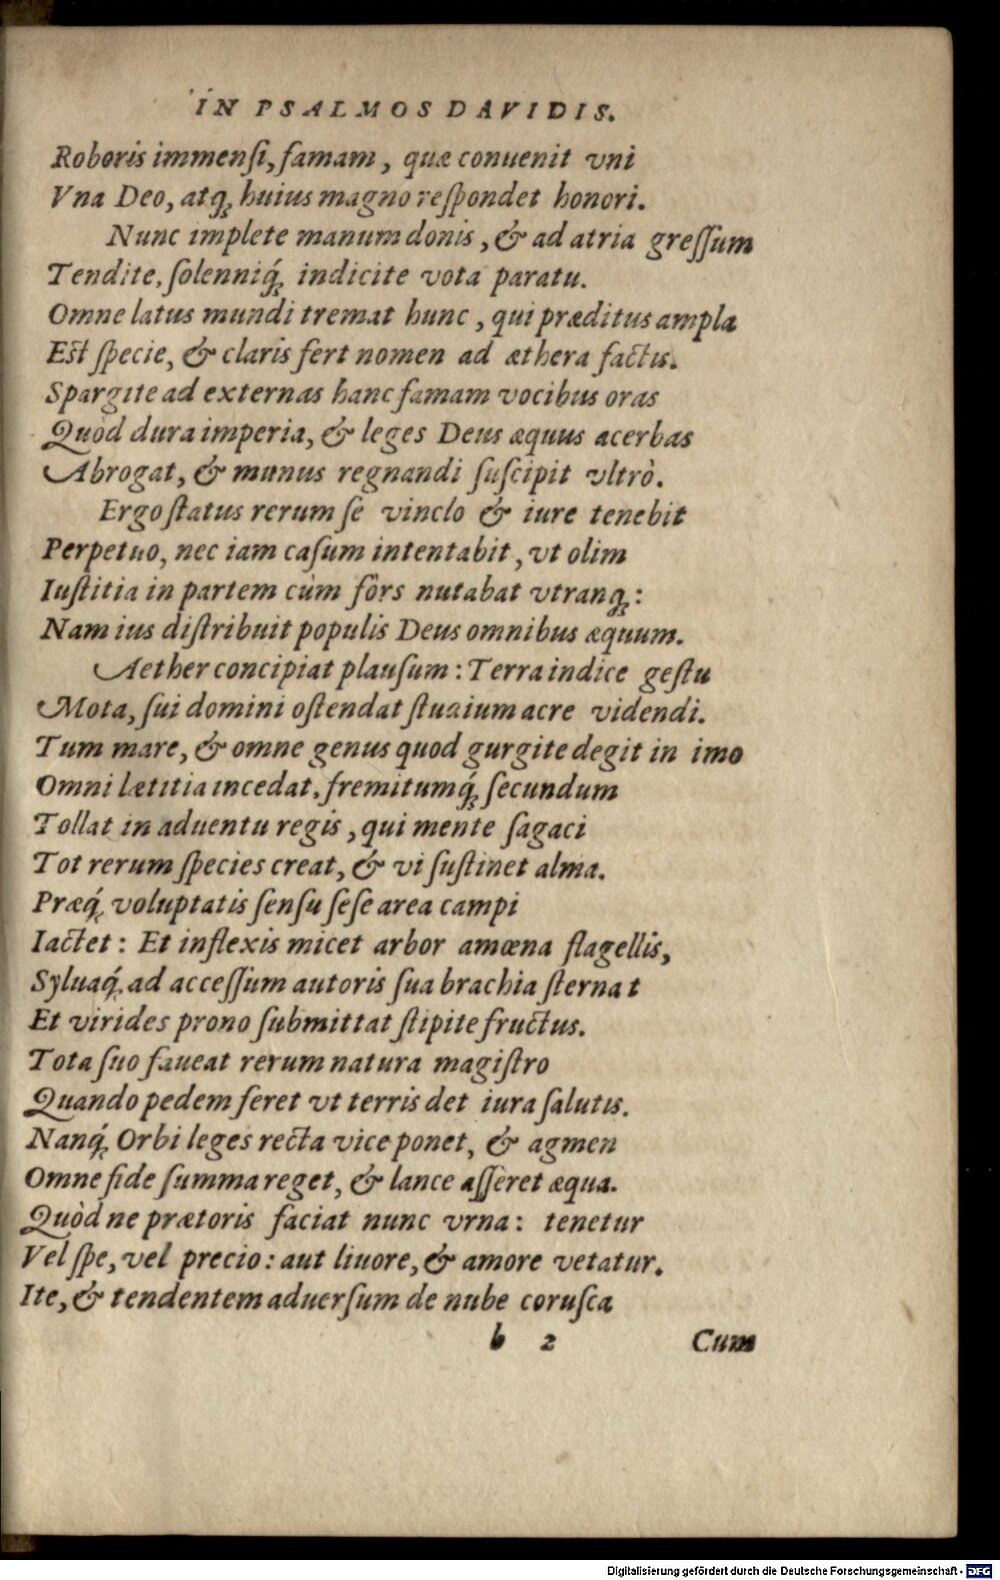 IN PSALMOS DAVIDIS.
Roboris immensi, famam, quæ conuenit vni
Vna Deo, atq; huius magno respondet honori.
Nunc implete manum donis, & ad atria gressum
Tendite, solenniq́; indicite vota paratu.
Omne latus mundi tremat hunc, qui præditus ampla
Est specie, & claris fert nomen ad æthera factis.
Spargite ad externas hanc famam vocibus oras
Quòd dura imperia, & leges Deus æquus acerbas
Abrogat, & munus regnandi suscipit vltrò.
Ergo status rerum se vinclo & iure tenebit
Perpetuo, nec iam casum intentabit, vt olim
Iustitia in partem cùm fors nutabat vtranq;:
Nam ius distribuit populis Deus omnibus æquum.
Aether concipiat plausum: Terra indice gestu
Mota, sui domini ostendat studium acre videndi.
Tum mare, & omne genus quod gurgite degit in imo
Omni lætitia incedat, fremitumq́; secundum
Tollat in aduentu regis, qui mente sagaci
Tot rerum species creat, & vi sustinet alma.
Præq́; voluptatis sensu sese area campi
Iactet: Et inflexis micet arbor amœna flagellis,
Syluaq́; ad accessum autoris sua brachia sternat
Et virides prono submittat stipite fructus.
Tota suo faueat rerum natura magistro
Quando pedem feret vt terris det iura salutis.
Nanq́; Orbi leges recta vice ponet, & agmen
Omne fide summa reget, & lance asseret æqua.
Quòd ne prætoris faciat nunc vrna: tenetur
Vel spe, vel precio: aut liuore, & amore vetatur.
Ite, & tendentem aduersum de nube corusca
b 2 Cum
Digitalisierung gefördert durch die Deutsche Forschungsgemeinschaft - DFG